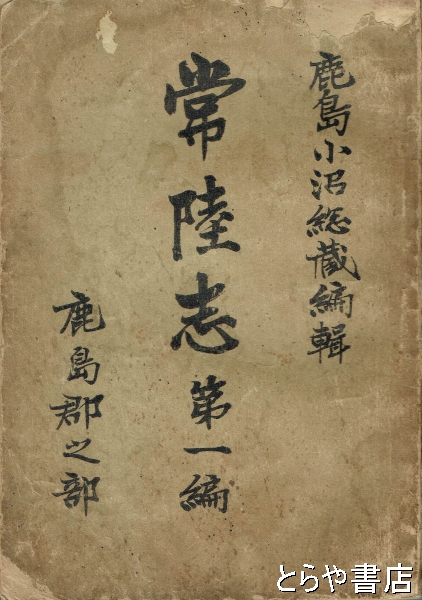 鹿島小沼總藏編輯
常陸志第一編
鹿島郡之部
とらや書店